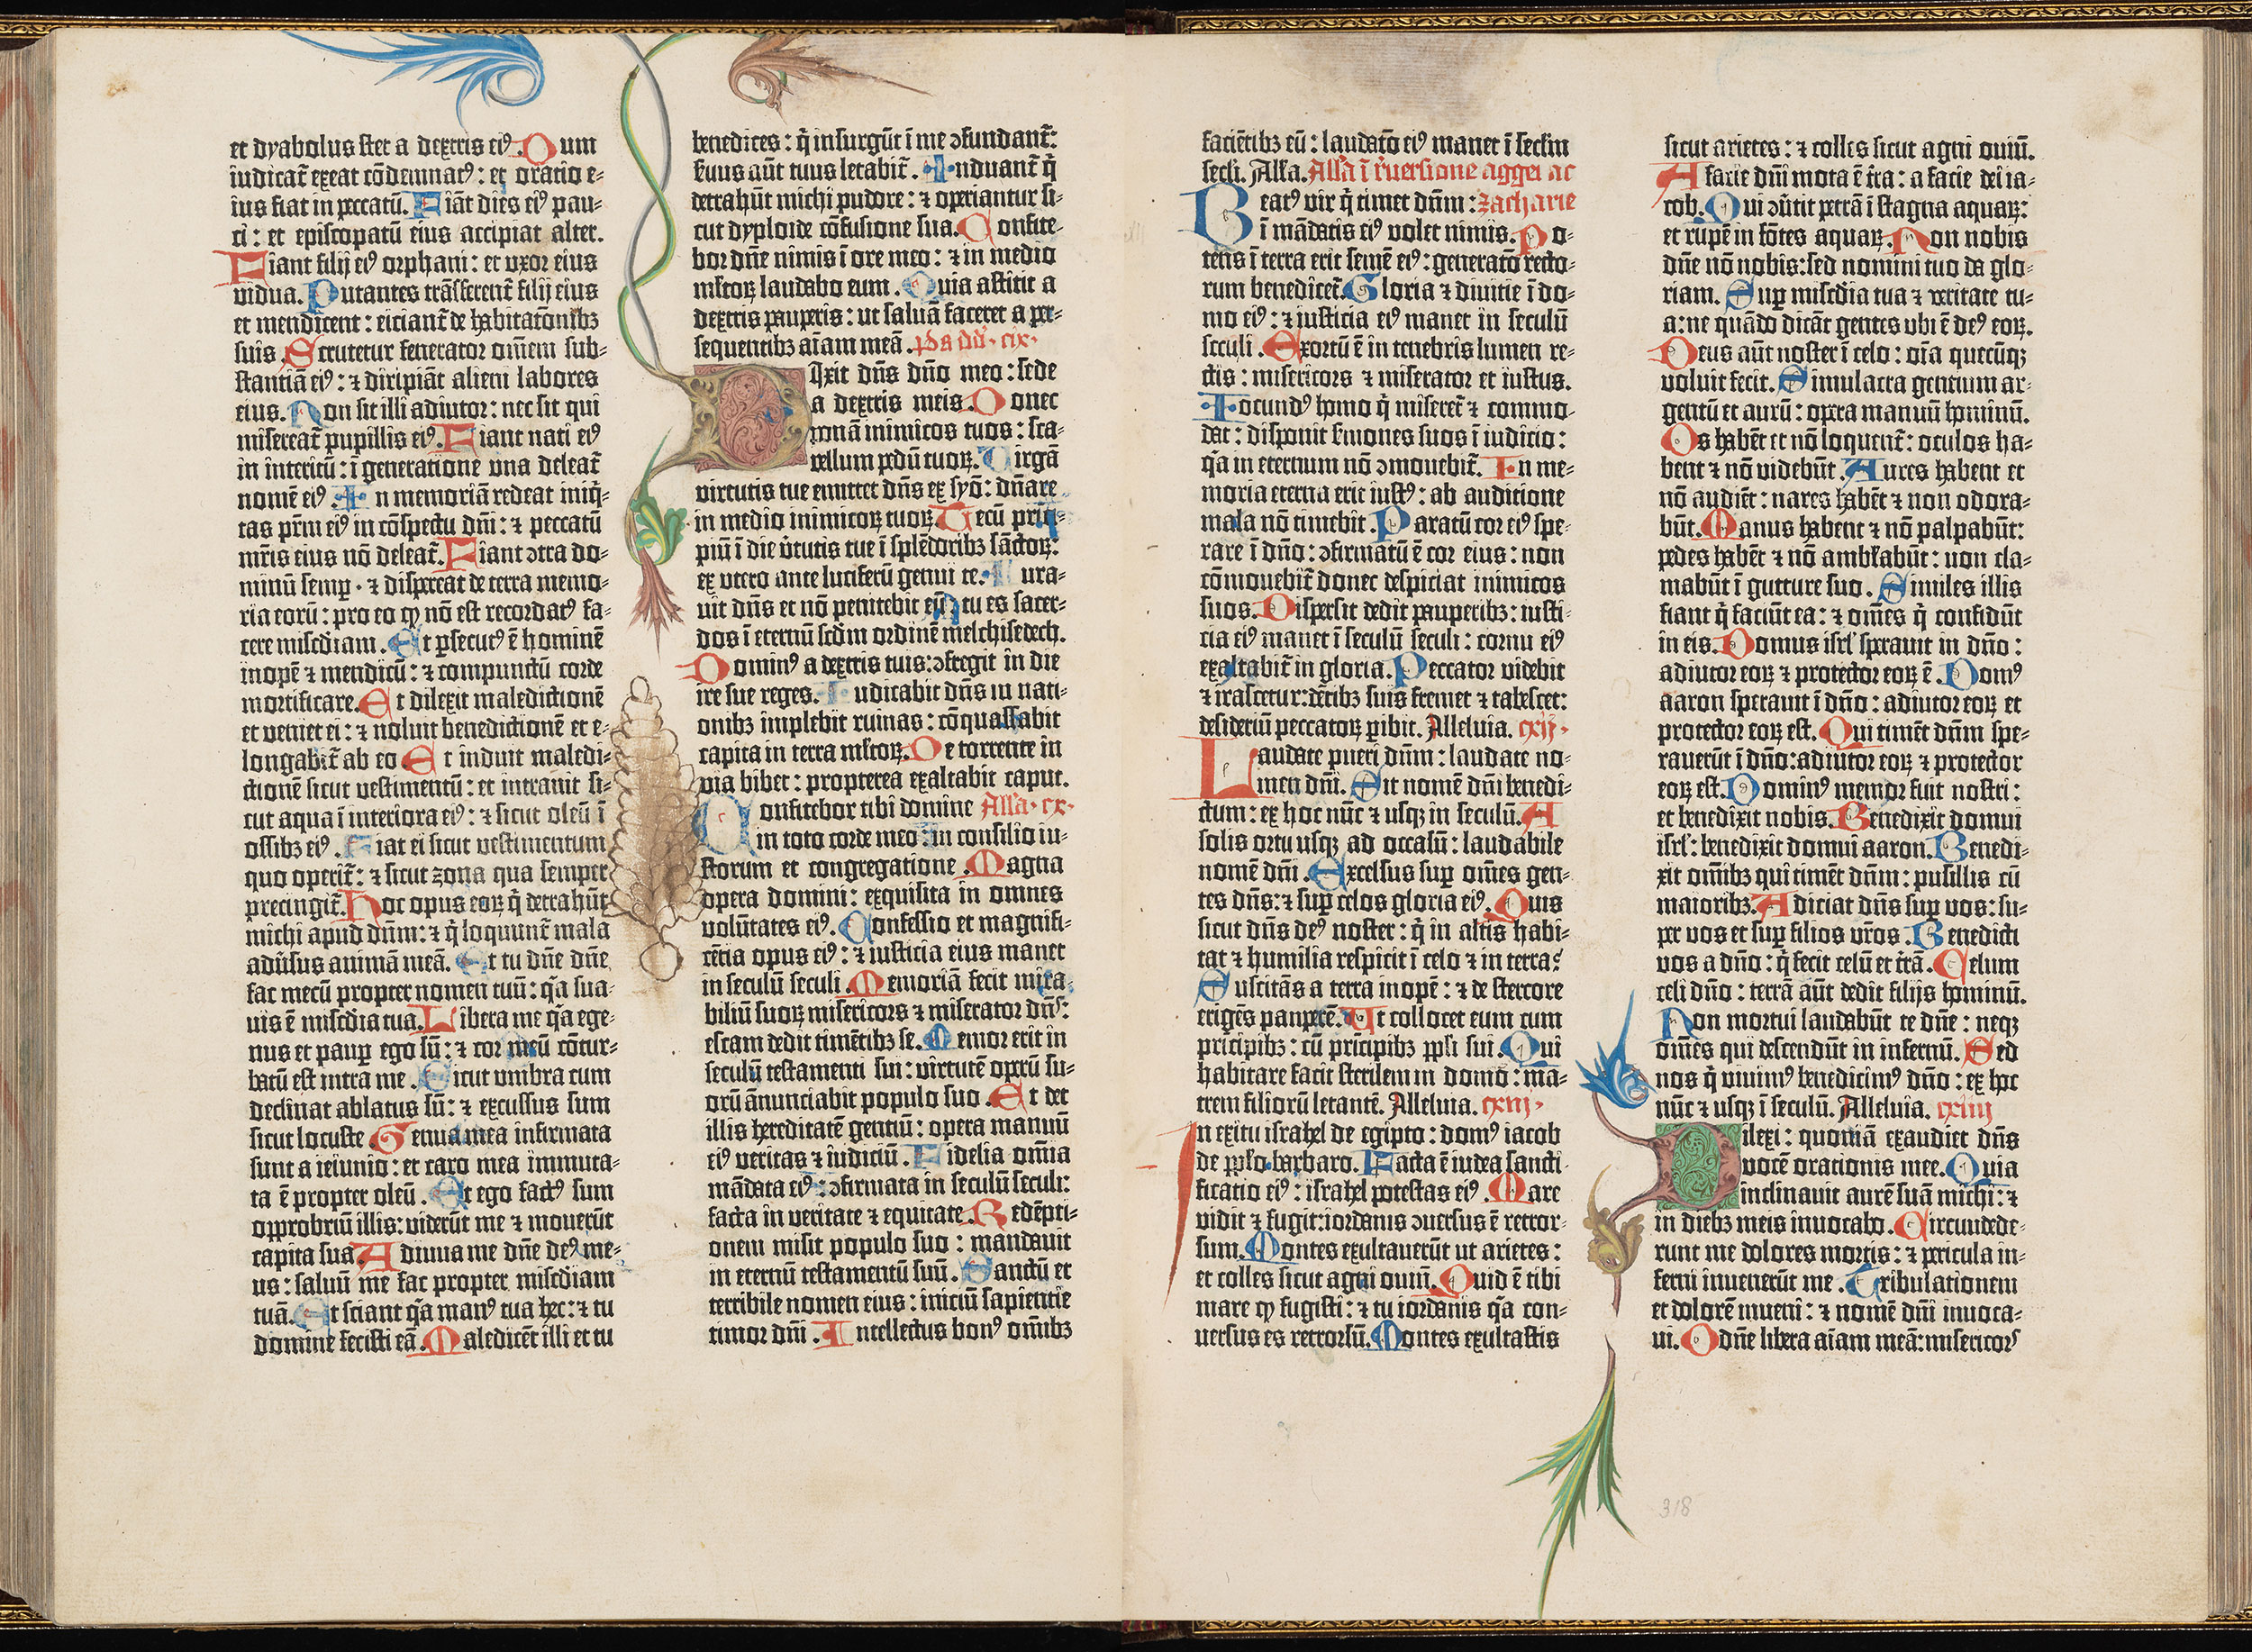 et dyabolus stet a dextris ei⁹. Dum
iudicat̄ exeat cōdemnat⁹: et oratio e-
ius fiat in peccatū. Fiāt dies ei⁹ pau-
ci: et episcopatū eius accipiat alter.
Fiant filij ei⁹ orphani: et vxor eius
vidua. Nutantes trāsferent̄ filij eius
et mendicent: eiciant̄ de habitatōnibꝫ
suis. Scrutetur fenerator om̄em sub-
stantiā ei⁹: ⁊ diripiāt alieni labores
eius. Non sit illi adiutor: nec sit qui
misereat̄ pupillis ei⁹. Fiant nati ei⁹
in interitū: ī generatione vna deleat̄
nomē ei⁹. In memoriā redeat iniq̄-
tas pr̄m ei⁹ in cōspectu dn̄i: ⁊ peccatū
mr̄is eius nō deleat̄. Fiant ↄtra do-
minū semꝑ · ⁊ dispereat de terra memo-
ria eorū: pro eo qꝫ nō est recordat⁹ fa-
cere miscd̄iam. Et ꝑsecut⁹ ē hominē
inopē ⁊ mendicū: ⁊ compunctū corde
mortificare. Et dilexit maledictionē
et veniet ei: ⁊ noluit benedictionē et e-
longabit̄ ab eo Et induit maledi-
ctionē sicut vestimentū: et intrauit si-
cut aqua ī interiora ei⁹: ⁊ sicut oleū ī
ossibꝫ ei⁹. Fiat ei sicut vestimentum
quo operit̄: ⁊ sicut zona qua semper
precingit̄. Hoc opus eoꝝ q̄ detrahūt
michi apud dn̄m: ⁊ q̄ loquunt̄ mala
adūsus animā meā. Et tu dn̄e dn̄e
fac mecū propter nomen tuū: q̄a sua-
uis ē miscd̄ia tua. Libera me q̄a ege-
nus et pauꝑ ego sū: ⁊ cor meū cōtur-
batū est intra me. Sicut vmbra cum
declinat ablatus sū: ⁊ excussus sum
sicut locuste Genua mea infirmata
sunt a ieiunio: et caro mea immuta-
ta ē propter oleū. Et ego fact⁹ sum
opprobriū illis: viderūt me ⁊ mouerūt
capita sua Adiuua me dn̄e de⁹ me-
us: saluū me fac propter miscd̄iam
tuā. Et sciant q̄a man⁹ tua hec: ⁊ tu
domine fecisti eā Maledicēt illi et tu
benedices: q̄ insurgūt ī me ↄfundant̄:
seruus aūt tuus letabit̄. Induant̄ q̄
detrahūt michi pudore: ⁊ operiantur si-
cut dyploide cōfusione sua. Confite-
bor dn̄e nimis ī ore meo: ⁊ in medio
ml̄toꝝ laudabo eum. Quia astitit a
dextris pauperis: ut saluā faceret a per-
sequentibꝫ aīam meā. p̄s dd̄ · cix ·
Dixit dn̄s dn̄o meo: sede
a dextris meis. Donec
ponā inimicos tuos: sca-
bellum pedū tuoꝝ. Virgā
virtutis tue emittet dn̄s ex syō: dn̄are
in medio inimicoꝝ tuoꝝ. Tecū prīci-
piū ī die v̄tutis tue ī splēdoribꝫ sāctoꝝ:
ex vtero ante luciferū genui te. Iura-
uit dn̄s et nō penitebit eū tu es sacer-
dos ī eternū scd̄m ordinē melchisedech.
Domin⁹ a dextris tuis: ↄfregit in die
ire sue reges. Iudicabit dn̄s in nati-
onibꝫ implebit ruinas: cōquassabit
capita in terra ml̄toꝝ. De torrente in
via bibet: propterea exaltabit caput.
Confitebor tibi domine All'a · cx ·
in toto corde meo in consilio iu-
storum et congregatione Magna
opera domini: exquisita in omnes
volūtates ei⁹. Confessio et magnifi-
cētia opus ei⁹: ⁊ iusticia eius manet
in seculū seculi. Memoriā fecit mira-
biliū suoꝝ misericors ⁊ miserator dn̄s:
escam dedit timētibꝫ se. Memor erit in
seculū testamenti sui: virtutē operū su-
orū ānunciabit populo suo. Et det
illis hereditatē gentiū: opera manuū
ei⁹ veritas ⁊ iudiciū. Fidelia omīa
mādata ei⁹: ↄfirmata in seculū seculi:
facta in veritate ⁊ equitate. Redēpti-
onem misit populo suo: mandauit
in eternū testamentū suū. Sanctū et
terribile nomen eius: iniciū sapientie
timor dn̄i. Intellectus bon⁹ om̄ibꝫ
faciētibꝫ eū: laudatō ei⁹ manet ī secl̄m
secl̄i. All'a. All'a ī r̄uersione aggei ac
Beat⁹ vir q̄ timet dn̄m: zacharie
ī mādatis ei⁹ volet nimis. Po-
tens ī terra erit semē ei⁹: generatō recto-
rum benedicet̄. Gloria ⁊ diuitie ī do-
mo ei⁹: ⁊ iusticia ei⁹ manet in seculū
seculi. Exortū ē in tenebris lumen re-
ctis: misericors ⁊ miserator et iustus.
Iocund⁹ homo q̄ miseret̄ ⁊ commo-
dat: disponit sermones suos ī iudicio:
q̄a in eternum nō ↄmouebit̄. In me-
moria eterna erit iust⁹: ab auditione
mala nō timebit. Paratū cor ei⁹ spe-
rare ī dn̄o: ↄfirmatū ē cor eius: non
cōmouebit̄ donec despiciat inimicos
suos. Dispersit dedit pauperibꝫ: iusti-
cia ei⁹ manet ī seculū seculi: cornu ei⁹
exaltabit̄ in gloria. Peccator videbit
⁊ irascetur: dētibꝫ suis fremet ⁊ tabescet:
desideriū peccatoꝝ ꝑibit. Alleluia. cxij ·
Laudate pueri dn̄m: laudate no-
men dn̄i. Sit nomē dn̄i benedi-
ctum: ex hoc nūc ⁊ usqꝫ in seculū. A
solis ortu usqꝫ ad occasū: laudabile
nomē dn̄i. Excelsus suꝑ om̄es gen-
tes dn̄s: ⁊ suꝑ celos gloria ei⁹. Quis
sicut dn̄s de⁹ noster: q̄ in altis habi-
tat ⁊ humilia respicit ī celo ⁊ in terra?
Suscitās a terra inopē: ⁊ de stercore
erigēs pauperē. Ut collocet eum cum
prīcipibꝫ: cū prīcipibꝫ pp̄li sui. Qui
habitare facit sterilem in domo: ma-
trem filiorū letantē. Alleluia. cxiij ·
In exitu israhel de egipto: dom⁹ iacob
de pp̄lo barbaro. Facta ē iudea sancti-
ficatio ei⁹: israhel potestas ei⁹. Mare
vidit ⁊ fugit: iordanis ↄuersus ē retror-
sum. Montes exultauerūt ut arietes:
et colles sicut agni ouiū. Quid ē tibi
mare qꝫ fugisti: ⁊ tu iordanis q̄a con-
uersus es retrorsū. Montes exultastis
sicut arietes: ⁊ colles sicut agni ouiū.
A facie dn̄i mota ē t̄ra: a facie dei ia-
cob. Qui ↄūtit petrā ī stagna aquaꝝ:
et rupē in fōtes aquaꝝ. Non nobis
dn̄e nō nobis: sed nomini tuo da glo-
riam. Suꝑ miscd̄ia tua ⁊ veritate tu-
a: ne quādo dicāt gentes vbi ē de⁹ eoꝝ.
Deus aūt noster ī celo: om̄ia quecūqꝫ
voluit fecit. Simulacra gentium ar-
gentū et aurū: opera manuū hominū.
Os habēt et nō loquent̄: oculos ha-
bent ⁊ nō videbūt. Aures habent et
nō audiēt: nares habēt ⁊ non odora-
būt. Manus habent ⁊ nō palpabūt:
pedes habēt ⁊ nō amblabūt: non cla-
mabūt ī gutture suo. Similes illis
fiant q̄ faciūt ea: ⁊ om̄es q̄ confidūt
in eis. Domus isrl' sperauit in dn̄o:
adiutor eoꝝ ⁊ protector eoꝝ ē. Dom⁹
aaron sperauit ī dn̄o: adiutor eoꝝ et
protector eoꝝ est. Qui timēt dn̄m spe-
rauerūt ī dn̄o: adiutor eoꝝ ⁊ protector
eoꝝ est. Domin⁹ memor fuit nostri:
et benedixit nobis. Benedixit domui
isrl': benedixit domui aaron. Benedi-
xit om̄ibꝫ qui timēt dn̄m: pusillis cū
maioribꝫ. Adiciat dn̄s suꝑ vos: su-
per vos et suꝑ filios vr̄os. Benedicti
vos a dn̄o: q̄ fecit celū et t̄rā. Celum
celi dn̄o: terrā aūt dedit filijs hominū.
Non mortui laudabūt te dn̄e: neqꝫ
om̄es qui descendūt in infernū. Sed
nos q̄ viuim⁹ benedicim⁹ dn̄o: ex hoc
nūc ⁊ usqꝫ ī seculū. Alleluia. cxiiij
Dilexi: quoniā exaudiet dn̄s
vocē orationis mee. Quia
inclinauit aurē suā michi: ⁊
in diebꝫ meis inuocabo. Circumdede-
runt me dolores mortis: ⁊ pericula in-
ferni inuenerūt me. Tribulationem
et dolorē inueni: ⁊ nomē dn̄i inuoca-
ui. O dn̄e libera aīam meā: misericors
318